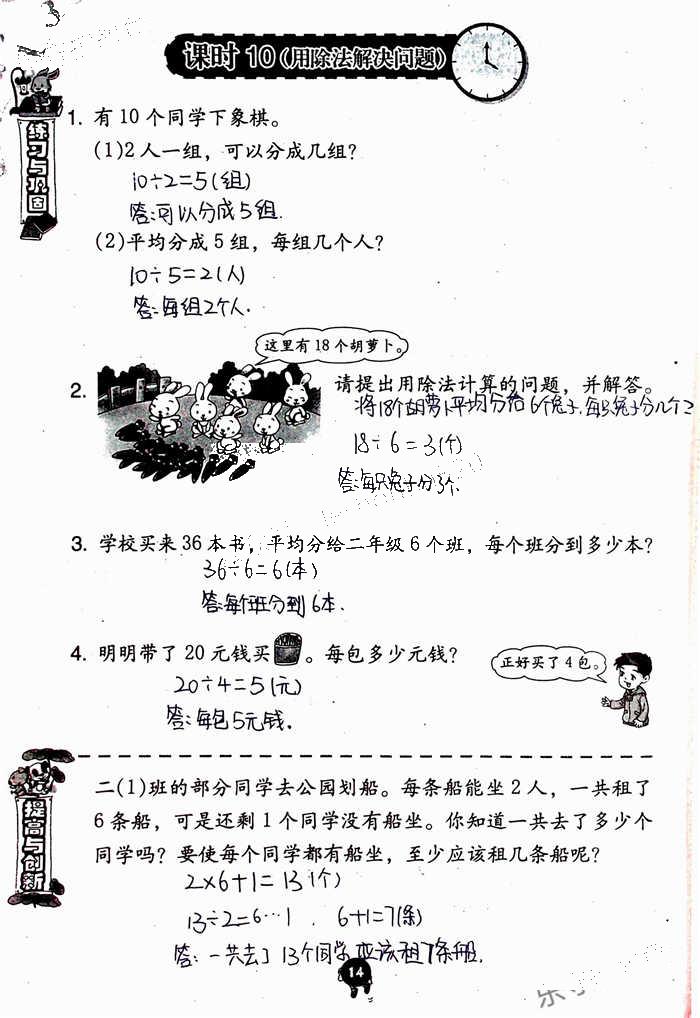 课时 10(用除法解决问题)
练习与巩固
1. 有 10 个同学下象棋。
(1)2 人一组，可以分成几组？
10÷2=5(组)
答:可以分成5组.
(2)平均分成 5 组，每组几个人？
10÷5=2(人)
答:每组2个人.
这里有 18 个胡萝卜。
2. 请提出用除法计算的问题，并解答。
将18个胡萝卜平均分给6个兔子.每只兔子分几个?
18÷6=3(个)
答:每只兔子分3个.
3. 学校买来 36 本书，平均分给二年级 6 个班，每个班分到多少本？
36÷6=6(本)
答:每个班分到6本.
4. 明明带了 20 元钱买 。每包多少元钱？
正好买了 4 包。
20÷4=5(元)
答:每包5元钱.
提高与创新
二(1)班的部分同学去公园划船。每条船能坐 2 人，一共租了
6 条船，可是还剩 1 个同学没有船坐。你知道一共去了多少个
同学吗？要使每个同学都有船坐，至少应该租几条船呢？
2×6+1=13(个)
13÷2=6…1 . 6+1=7(条)
答:一共去了13个同学应该租7条船.
14